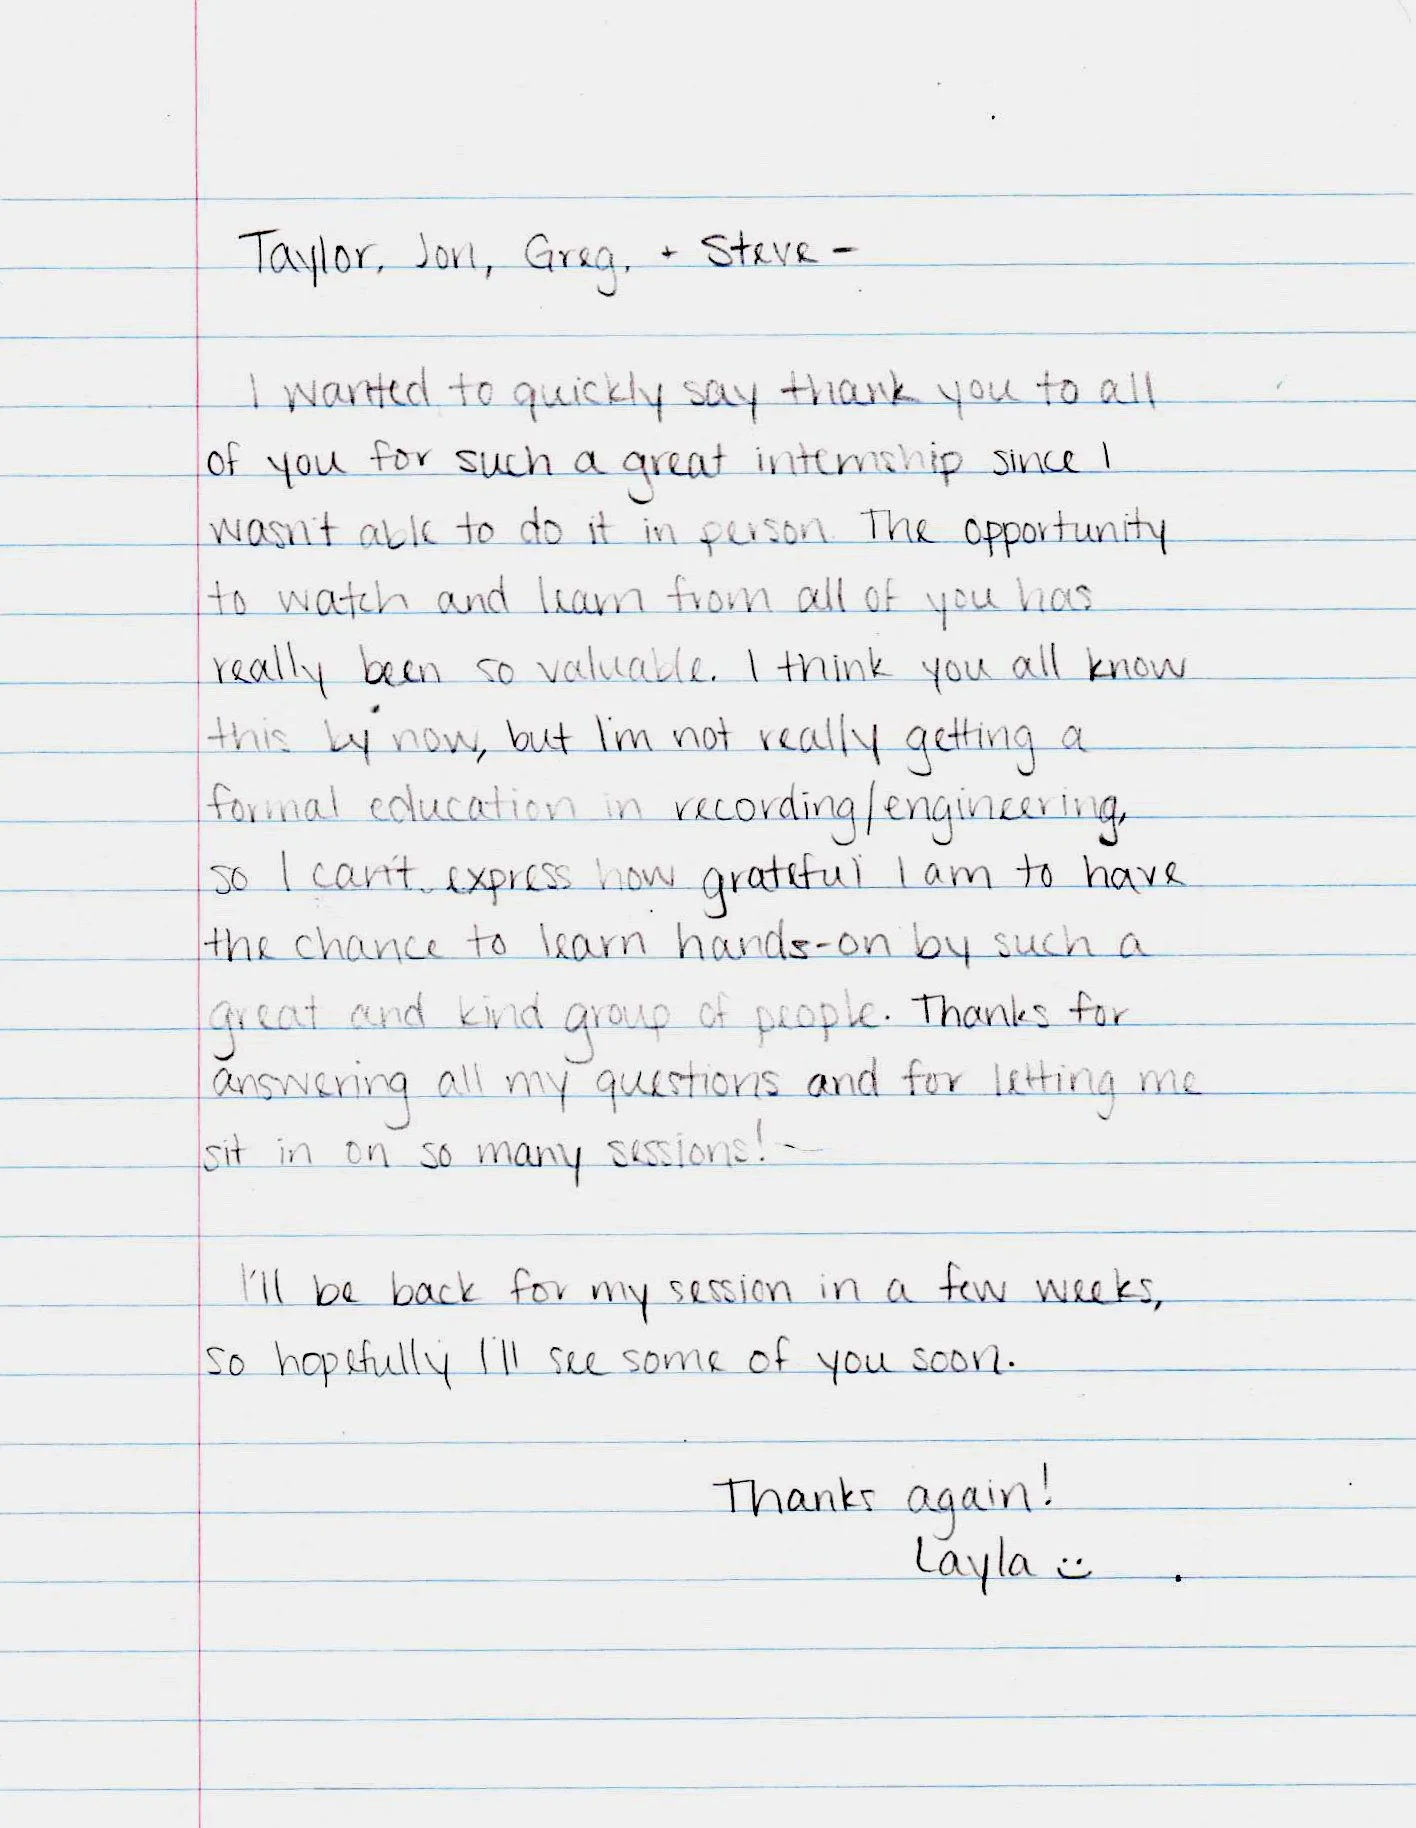 Taylor, Jon, Greg, + Steve -
I wanted to quickly say thank you to all
of you for such a great internship since I
wasn't able to do it in person. The opportunity
to watch and learn from all of you has
really been so valuable. I think you all know
this by now, but I'm not really getting a
formal education in recording/engineering,
so I can't express how grateful I am to have
the chance to learn hands-on by such a
great and kind group of people. Thanks for
answering all my questions and for letting me
sit in on so many sessions! ~
I'll be back for my session in a few weeks,
so hopefully I'll see some of you soon.
Thanks again!
Layla :)